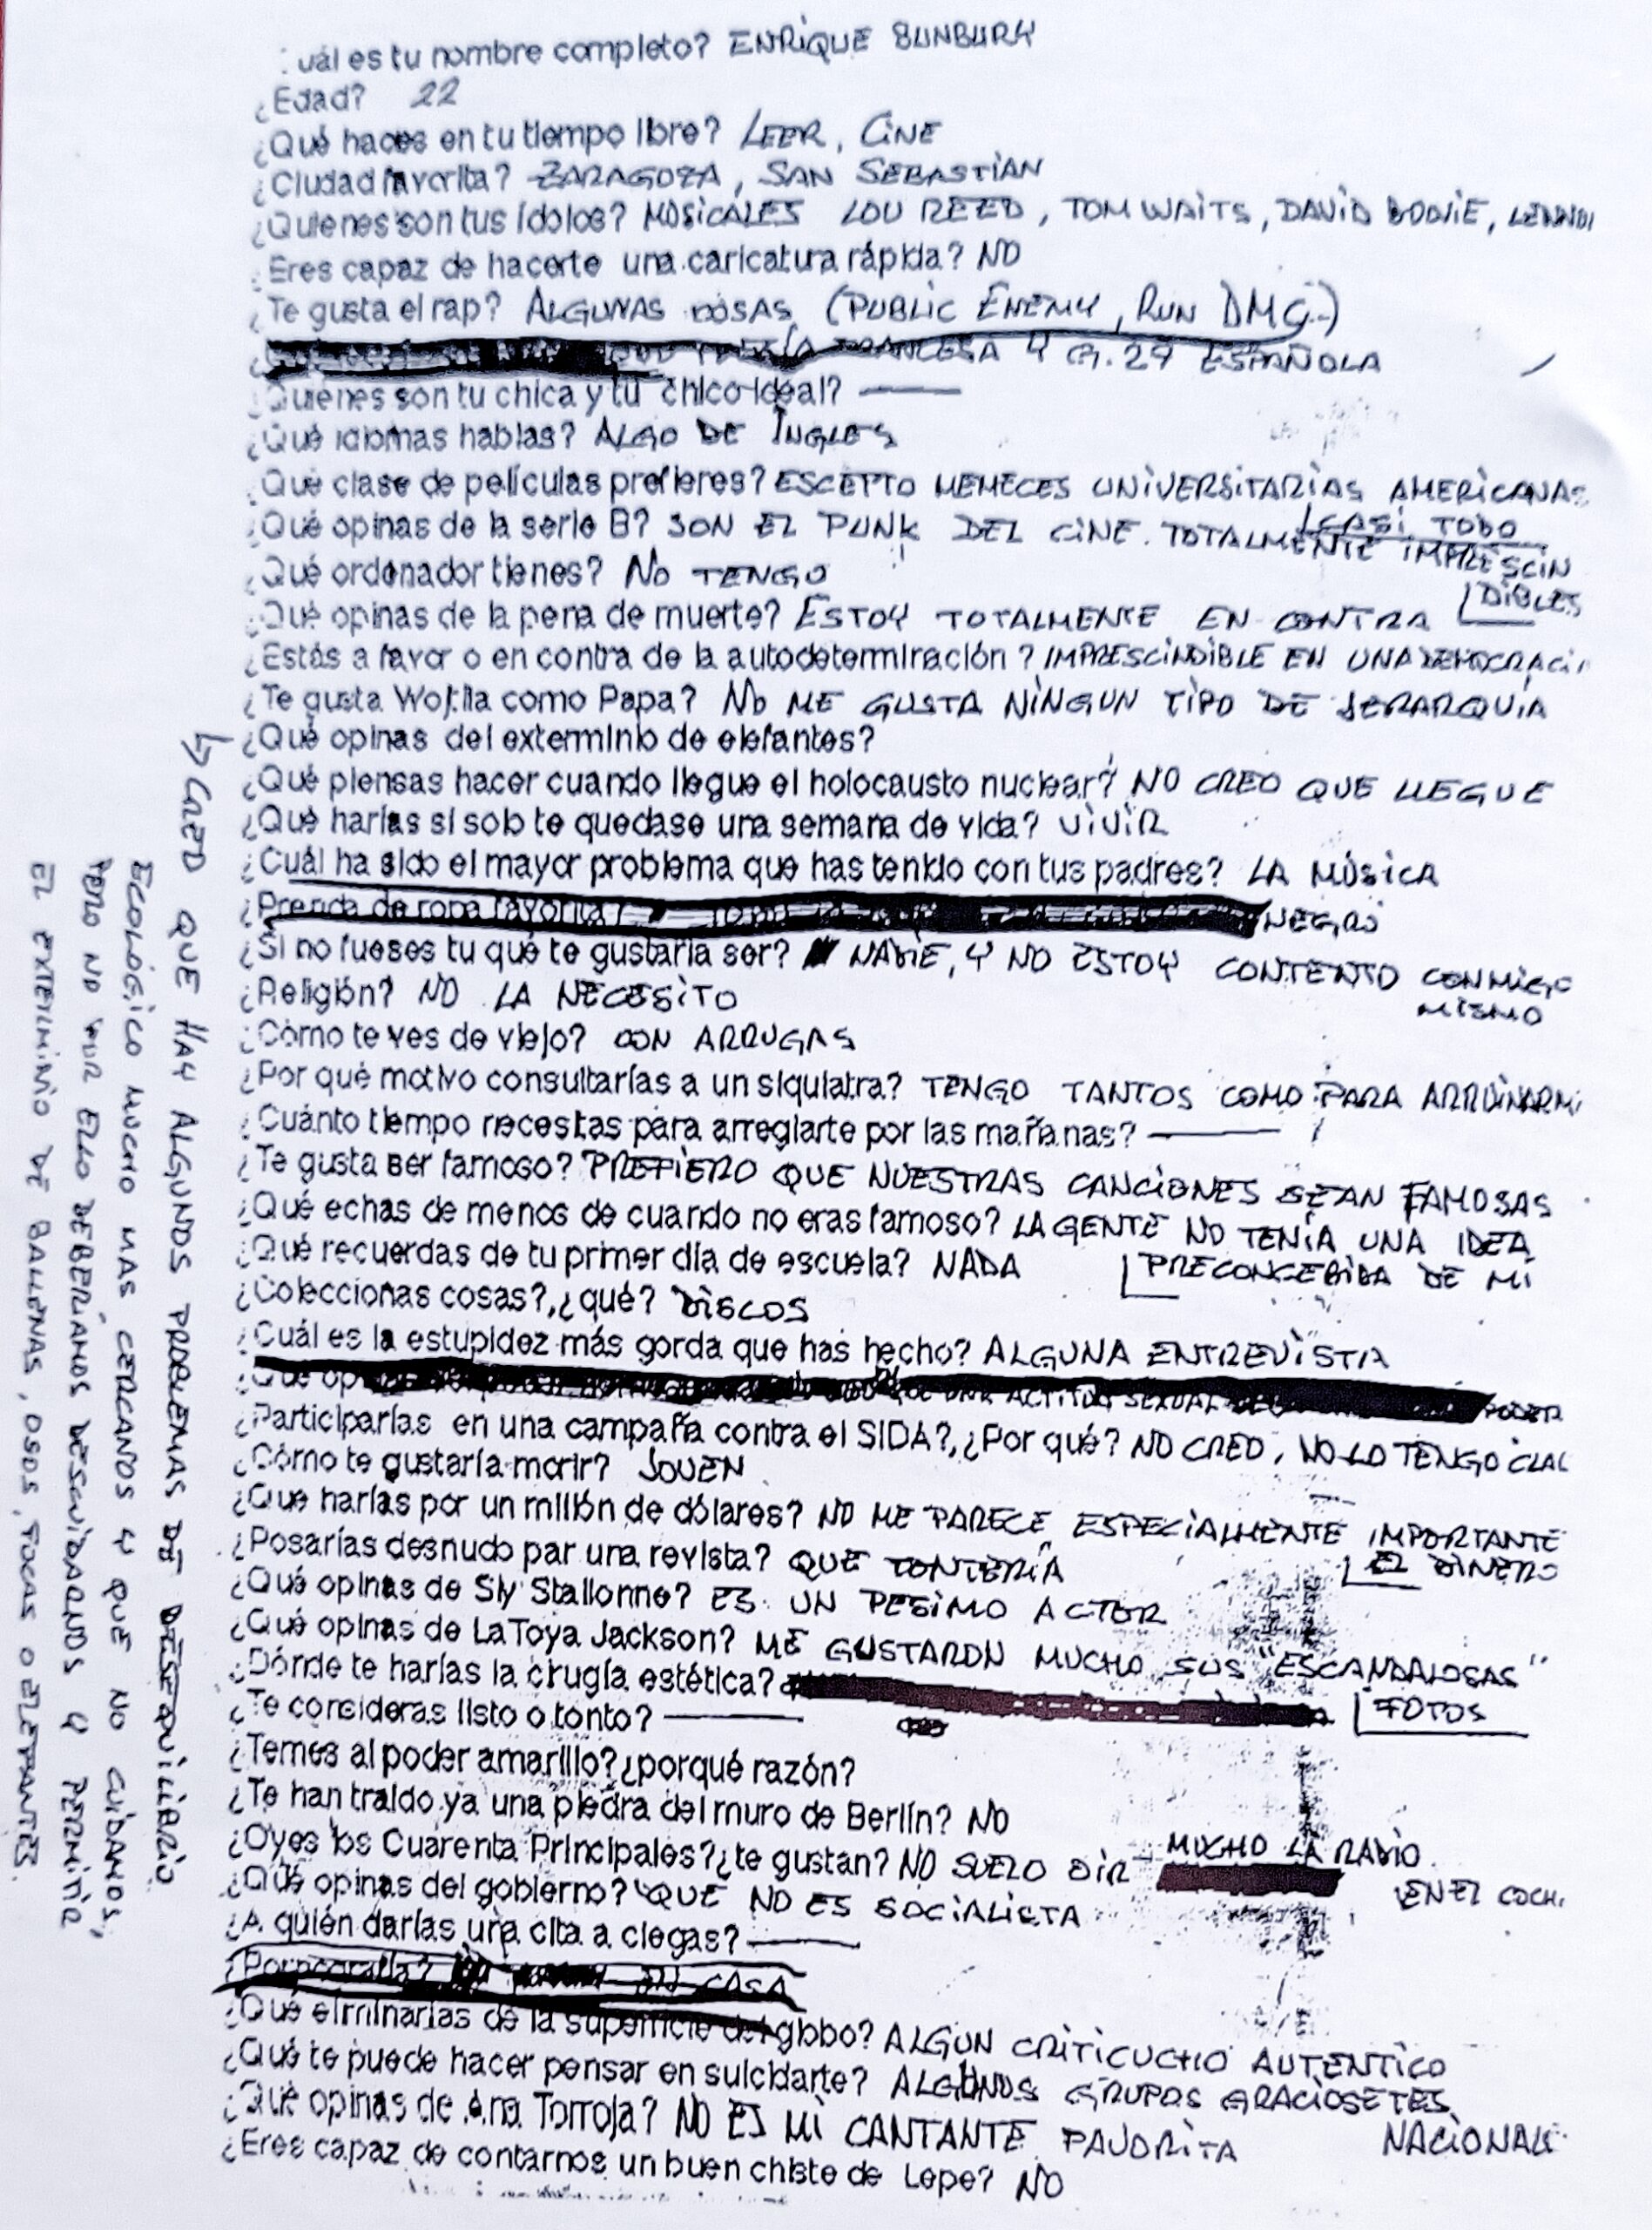 uál es tu nombre completo? ENRIQUE BUNBURY
¿Edad? 22
¿Qué haces en tu tiempo libre? LEER, CINE
¿Ciudad favorita? ZARAGOZA, SAN SEBASTIAN
¿Quienes son tus ídolos? MUSICALES LOU REED, TOM WAITS, DAVID BOWIE, LENNON
¿Eres capaz de hacerte una caricatura rápida? NO
¿Te gusta el rap? ALGUNAS COSAS (PUBLIC ENEMY, RUN DMC.)
FRANCESA Y G. 27 ESPAÑOLA
¿Quienes son tu chica y tu chico ideal? ——
¿Qué idiomas hablas? ALGO DE INGLES
¿Qué clase de películas prefieres? ESCEPTO MEMECES UNIVERSITARIAS AMERICANAS
CASI TODO
¿Qué opinas de la serie B? SON EL PUNK DEL CINE. TOTALMENTE IMPRESCIN
DIBLES
¿Qué ordenador tienes? NO TENGO
¿Qué opinas de la pena de muerte? ESTOY TOTALMENTE EN CONTRA
¿Estás a favor o en contra de la autodetermiración? IMPRESCINDIBLE EN UNA DEMOCRACI
¿Te gusta Wojtila como Papa? NO ME GUSTA NINGUN TIPO DE JERARQUIA
¿Qué opinas del exterminio de elefantes?
¿Qué piensas hacer cuando llegue el holocausto nuclear? NO CREO QUE LLEGUE
¿Qué harías si solo te quedase una semana de vida? VIVIR
¿Cuál ha sido el mayor problema que has tenido con tus padres? LA MÚSICA
¿Prenda de ropa favorita? NEGRO
¿Si no fueses tu qué te gustaría ser? NADIE, Y NO ESTOY CONTENTO CONMIGO
MISMO
¿Religión? NO LA NECESITO
¿Cómo te ves de viejo? CON ARRUGAS
¿Por qué motivo consultarías a un siquiatra? TENGO TANTOS COMO PARA ARRUINARM
¿Cuánto tiempo necesitas para arreglarte por las mañanas? ——
¿Te gusta ser famoso? PREFIERO QUE NUESTRAS CANCIONES SEAN FAMOSAS
¿Qué echas de menos de cuando no eras famoso? LA GENTE NO TENÍA UNA IDEA
PRECONCEBIDA DE MI
¿Qué recuerdas de tu primer día de escuela? NADA
¿Coleccionas cosas?,¿qué? DISCOS
¿Cuál es la estupidez más gorda que has hecho? ALGUNA ENTREVISTA
¿Qué op UNA ACTITUD SEXUAL PODER
¿Participarías en una campaña contra el SIDA?,¿Por qué? NO CREO, NO LO TENGO CLA
¿Cómo te gustaría morir? JOVEN
¿Que harías por un millón de dólares? NO ME PARECE ESPECIALMENTE IMPORTANTE
EL DINERO
¿Posarías desnudo par una revista? QUE TONTERIA
¿Qué opinas de Sly Stallonne? ES UN PESIMO ACTOR
¿Qué opinas de LaToya Jackson? ME GUSTARON MUCHO SUS "ESCANDALOSAS"
FOTOS
¿Dónde te harías la cirugía estética?
¿Te consideras listo o tonto? ——
¿Temes al poder amarillo?¿porqué razón?
¿Te han traído ya una piedra del muro de Berlín? NO
¿Oyes los Cuarenta Principales?¿te gustan? NO SUELO OIR MUCHO LA RADIO
EN EL COCH
¿Qué opinas del gobierno? QUE NO ES SOCIALISTA
¿A quién darías una cita a ciegas? ——
¿Pornografía? EN CASA
¿Qué eliminarías de la superficie del globo? ALGUN CRITICUCHO AUTENTICO
¿Qué te puede hacer pensar en suicidarte? ALGUNOS GRUPOS GRACIOSETES
NACIONALE
¿Qué opinas de Ana Torroja? NO ES MI CANTANTE FAVORITA
¿Eres capaz de contarnos un buen chiste de Lepe? NO
CREO QUE HAY ALGUNOS PROBLEMAS DE DESEQUILIBRIO
ECOLÓGICO MUCHO MAS CERCANOS Y QUE NO CUIDAMOS,
PERO NO POR ELLO DEBERÍAMOS DESCUIDARNOS Y PERMITIR
EL EXTERMINIO DE BALLENAS, OSOS, FOCAS O ELEFANTES.